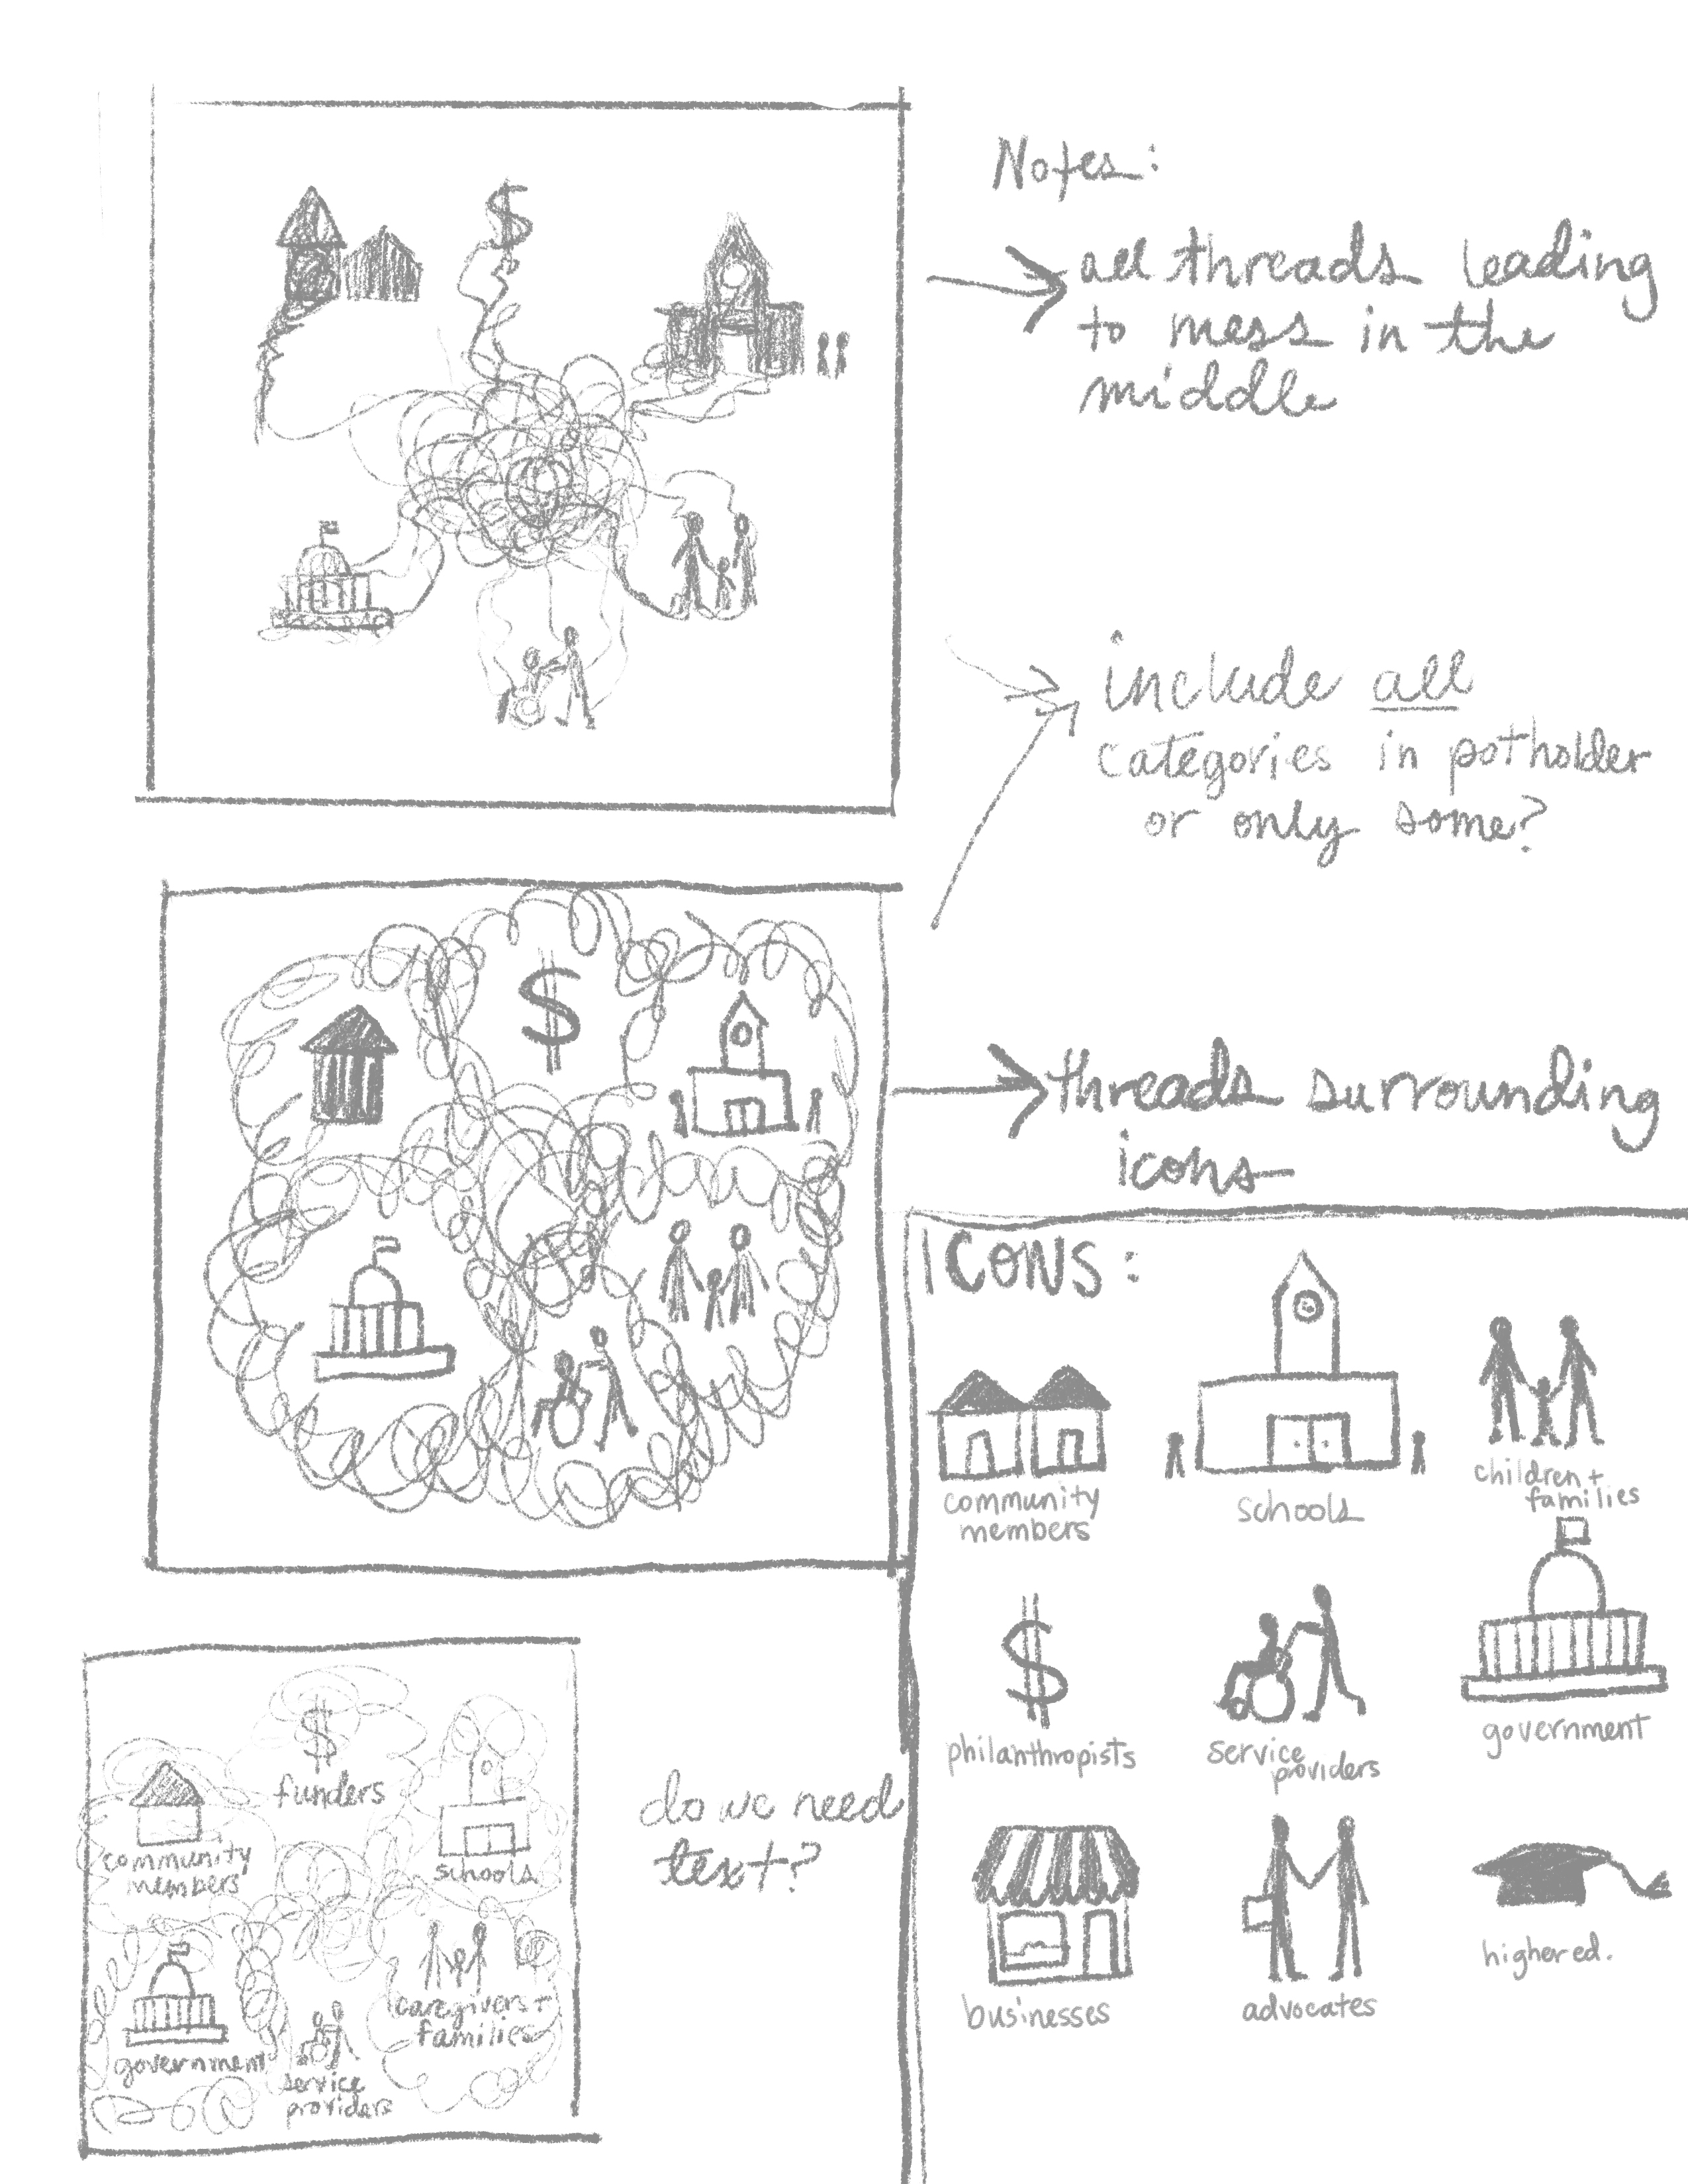 Notes:
all threads leading
to mess in the
middle
include all
categories in potholder
or only some?
threads surrounding
icons
ICONS:
community
members
schools
children +
families
philanthropists
service
providers
government
businesses
advocates
higher ed.
funders
community
members
schools
caregivers +
families
government
service
providers
do we need
text?
$
$
$
$